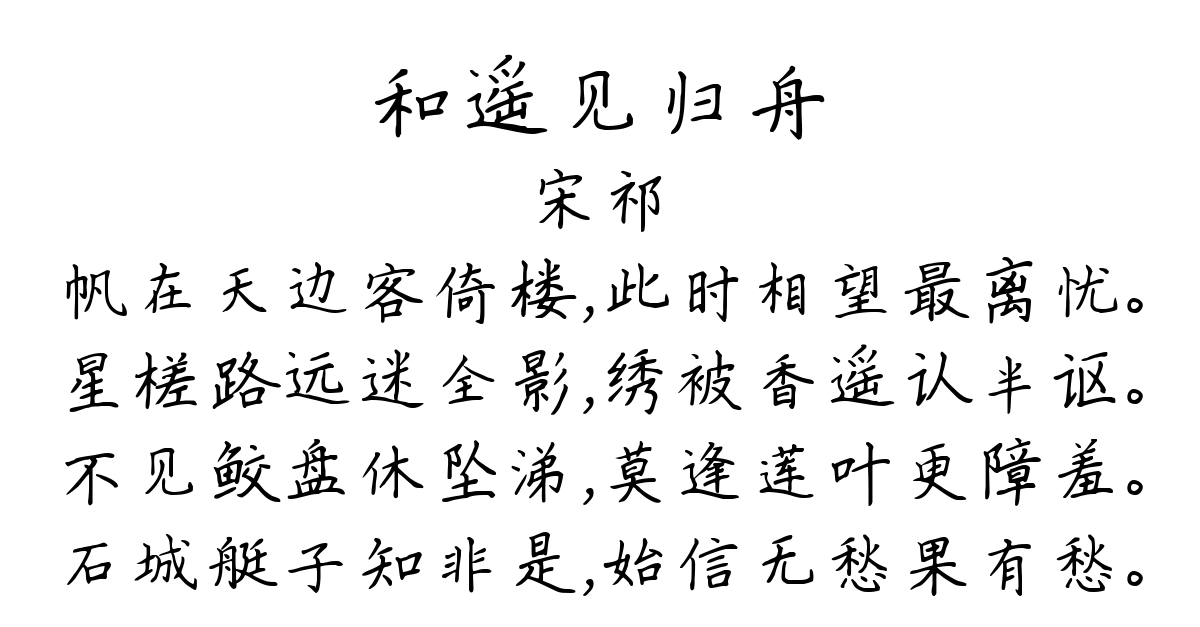 和遥见归舟
宋祁
帆在天边客倚楼,此时相望最离忧。
星槎路远迷全影,绣被香遥认半讴。
不见鲛盘休坠涕,莫逢莲叶更障羞。
石城艇子知非是,始信无愁果有愁。